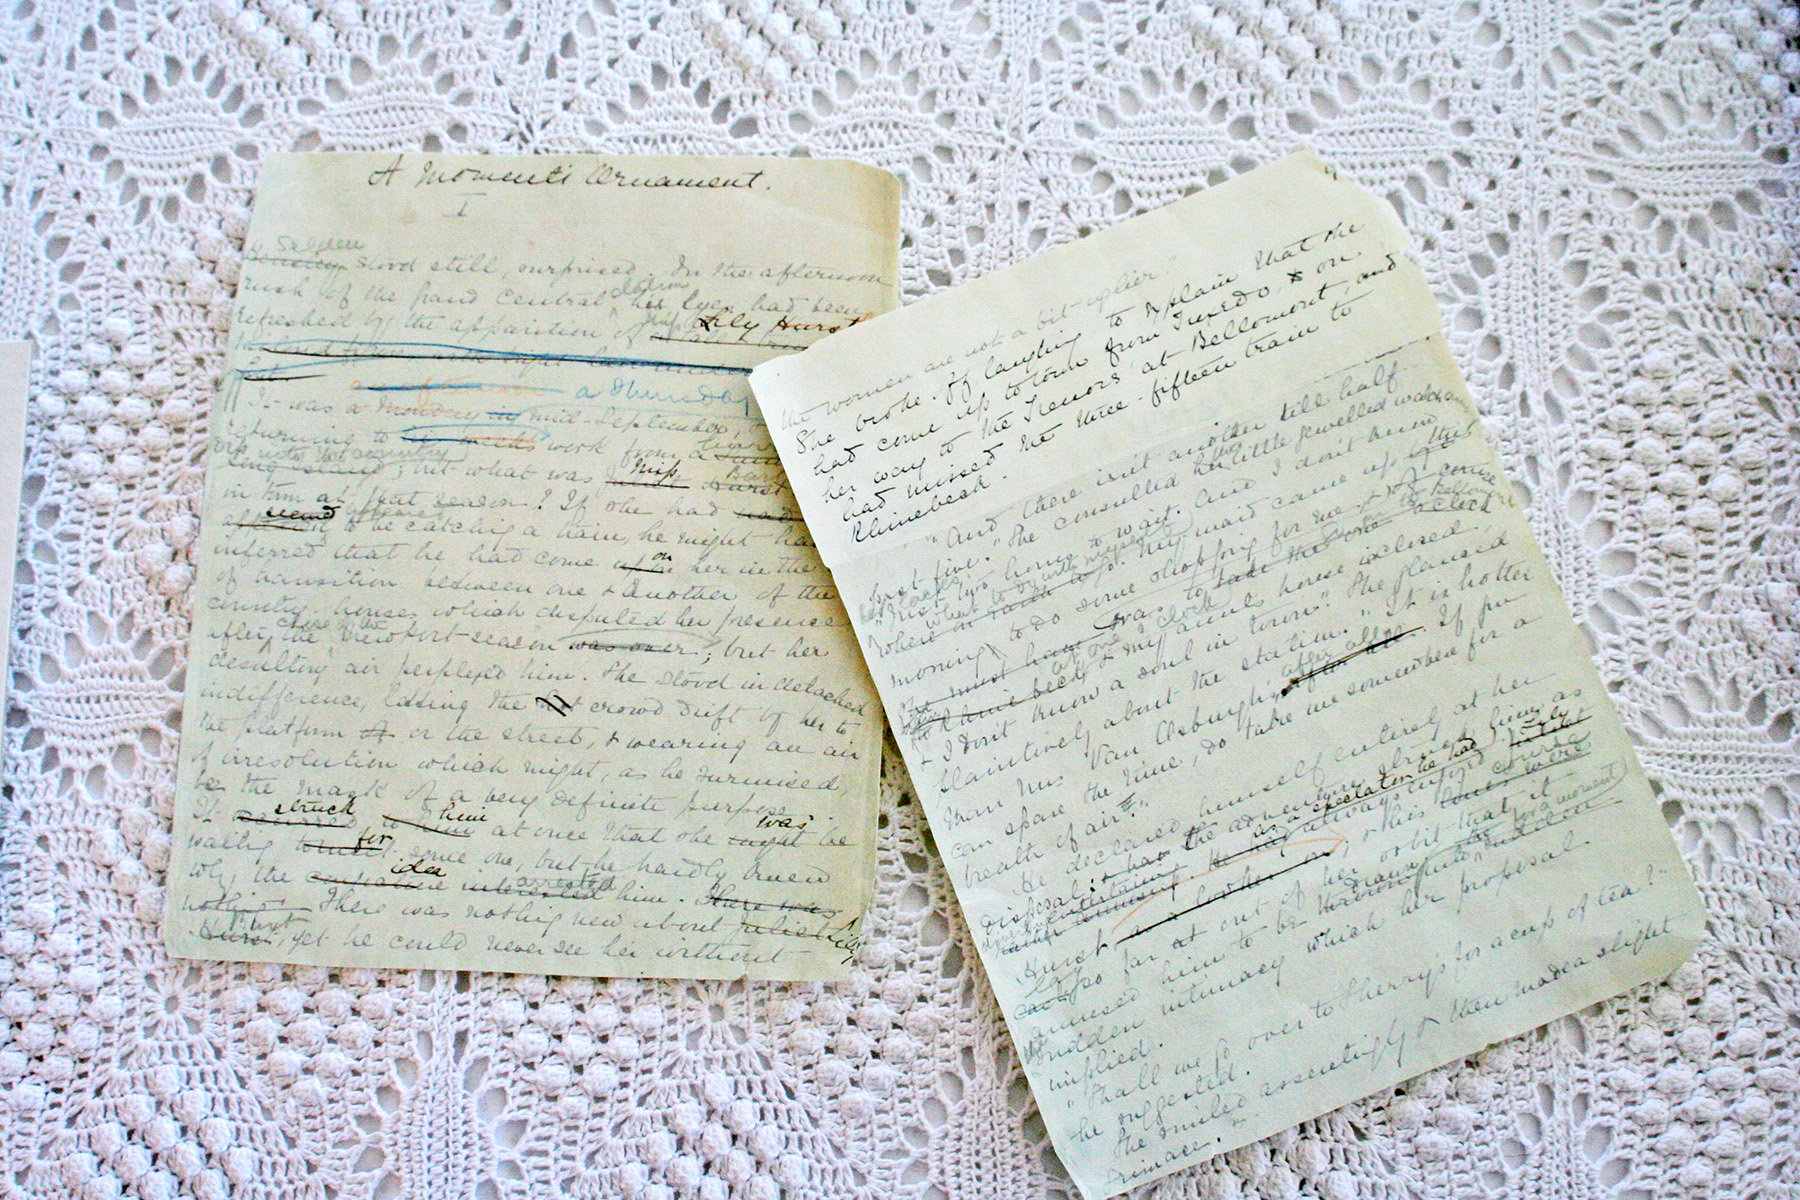 A Moment's Ornament.
I
Selden
stood still, surprised. In the afternoon
rush of the Grand Central station his eyes had been
refreshed by the apparition of Miss Lily Hurst
a Thursday
It was a Monday in mid-September,
returning to work from a
dip into the country
Long Island; but what was Miss Hurst Bart
in town at that season? If she had
seemed appeared to be catching a train, he might have
inferred that he had come upon on her in the
of transition between one & another of the
country-houses which disputed her presence
after the close of the Newport-season was over; but her
desultory air perplexed him. She stood in detached
indifference, letting the crowd drift by her to
the platform or the street, & wearing an air
of irresolution which might, as he surmised,
be the mask of a very definite purpose.
struck him was
It occurred to him at once that she might be
waiting for some one, but he hardly knew
idea arrested
why the interested him. There was
nothing There was nothing new about Lily
Hurst Bart, yet he could never see her without
the women are not a bit uglier?
She broke off laughing to explain that she
had come up to town from Tuxedo, on
her way to the Trenors' at Bellomont, and
had missed the three-fifteen train to
Rhinebeck.
"And there isn't another till half
past five." She consulted the little jewelled watch
"Just two hours to wait. And I don't know
what to do with myself
where on earth to go. My maid came up this
morning to do some shopping for me, & of course
was to take the one o'clock
she must have
Rhinebeck, & my aunt's house is closed.
& I don't know a soul in town." She glanced
plaintively about the station. "It is hotter
than Mrs Van Osburgh's after all. If you
can spare the time, do take me somewhere for a
breath of air."
He declared himself entirely at her
disposal: the adventure struck him as
as a spectator he had Lily
Hurst,
so far out of her orbit that it
amused him to be drawn for a moment into the
sudden intimacy which her proposal
implied.
"Shall we go over to Sherry's for a cup of tea?"
he suggested.
She smiled assentingly & then made a slight
grimace.